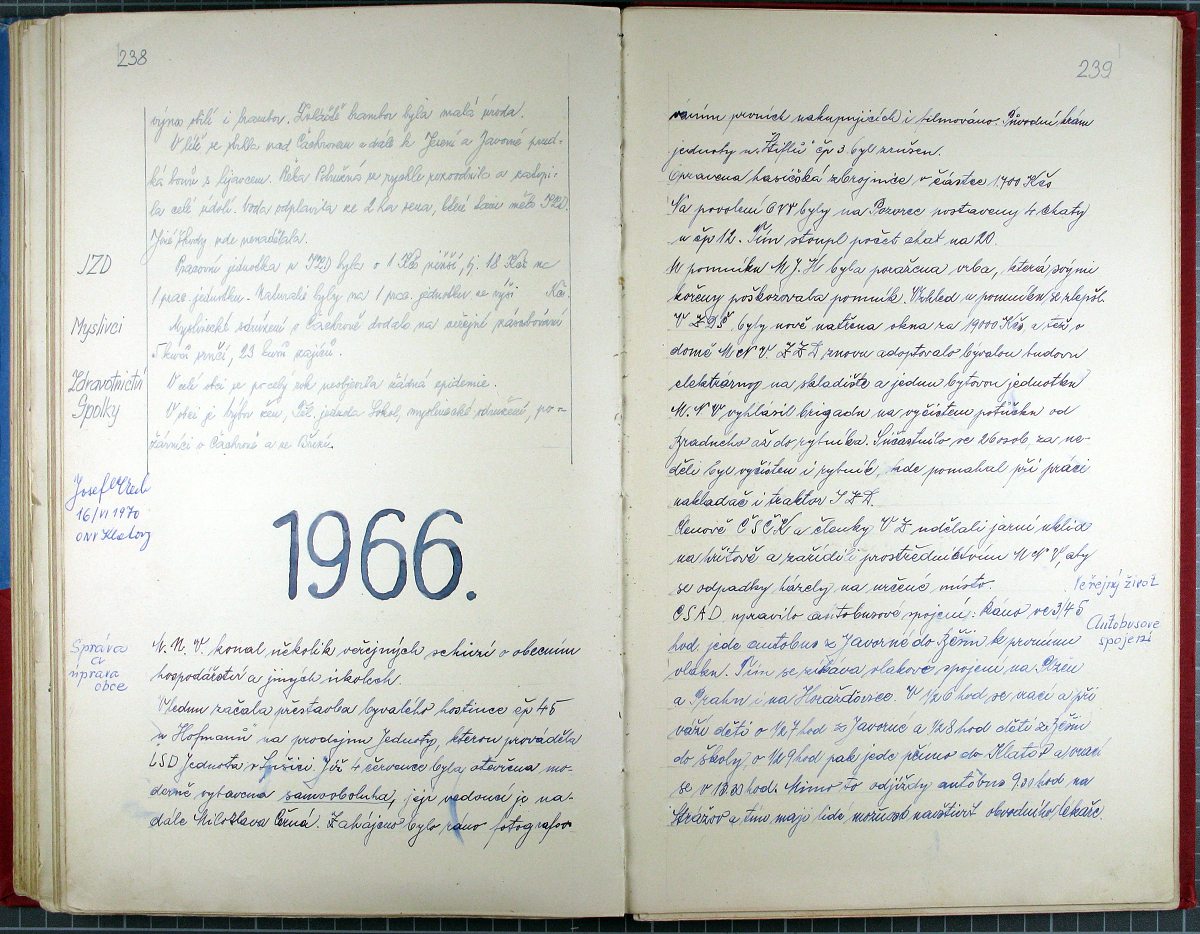 238
výnos obilí i brambor. Zvláště brambor byla malá úroda.
V létě se strhla nad Čachrovem a dále k Jesení a Javorné prud-
ká bouře s lijavcem. Řeka Ostružná se rychle rozvodnila a zatopi-
la celé údolí. Voda odplavila ze 2 ha sena, které tam mělo JZD.
Jiné škody zde nenadělala.
JZD
Pracovní jednotka u JZD byla o 1 Kčs nižší, tj. 18 Kčs na
1 prac. jednotku. Naturalie byly na 1 prac. jednotku ve výši Kčs.
Myslivci
Myslivecké sdružení v Čachrově dodalo na veřejné zásobování
5 kusů srnčí, 23 kusů zajíců.
Zdravotnictví
V celé obci se po celý rok neobjevila žádná epidemie.
Spolky
V obci je Výbor žen, Těl. jednota Sokol, myslivecké sdružení, po-
žárníci v Čachrově a ve Březí.
Josef
16/VI 1970
ONV Klatovy
1966.
Správa
a
úprava
obce
M. N. V. konal několik veřejných schůzí o obecním
hospodářství a jiných úkolech.
V lednu začala přestavba bývalého hostince čp 45
u Hofmanů na prodejnu Jednoty, kterou prováděla
LSD Jednota v Sušici. Již 4 července byla otevřena mo-
derně vybavena samoobsluha, její vedoucí je na-
dále Miloslava Černá. Zahájeno bylo ráno fotografov-
239
váním prvních nakupujících i filmováno. Původní krám
jednoty u "Štiflů" čp 3 byl zrušen.
Opravena hasičská zbrojnice v částce 1.700 Kčs
Na povolení ONV byly na Bozovec postaveny 4 chaty
u čp 12. Tím stoupl počet chat na 20.
U pomníku M. J. H byla poražena vrba, která svými
kořeny poškozovala pomník. Vzhled u pomníku se zlepšil.
V ZDŠ byly nově natřena okna za 19000 Kčs, a též v
domě MNV. JZD znovu adoptovalo bývalou budovu
elektrárny na skladiště a jednu bytovou jednotku
M. N V vyhlásil brigadu na vyčistem potůčku od
Hradecho až do rybníka. Súčastnilo se 26 osob, za ne-
děli byl vyčištěn i rybník, kde pomahal při práci
nakladač i traktor JZD.
Členové ČSČK a članky V Ž udělali jarní uklid
na hřitově a zařídili prostřednictvím MNV, aby
se odpadky házely na určené místo.
Veřejný život
ČSAD upravilo autobusové spojení: Ráno ve 3/4 5
Autobusové
spojení
hod. jede autobus z Javorné do Běšin k prvnímu
vlaku. Tím se získáva vlakové spojení na Plzeň
a Prahu i na Horažďovice. V 1/2 6 hod se vrací a při
váží děti v 1/2 7 hod z Javorné a 1/2 8 hod děti z Běšin
do školy, v 1/2 9 hod pak jede přímo do Klatov a vrací
se v 13.00 hod. Mimo to odjíždy autobus 9.00 hod na
Strážov a tím mají lidé možnost navštívit obvodního lékaře.